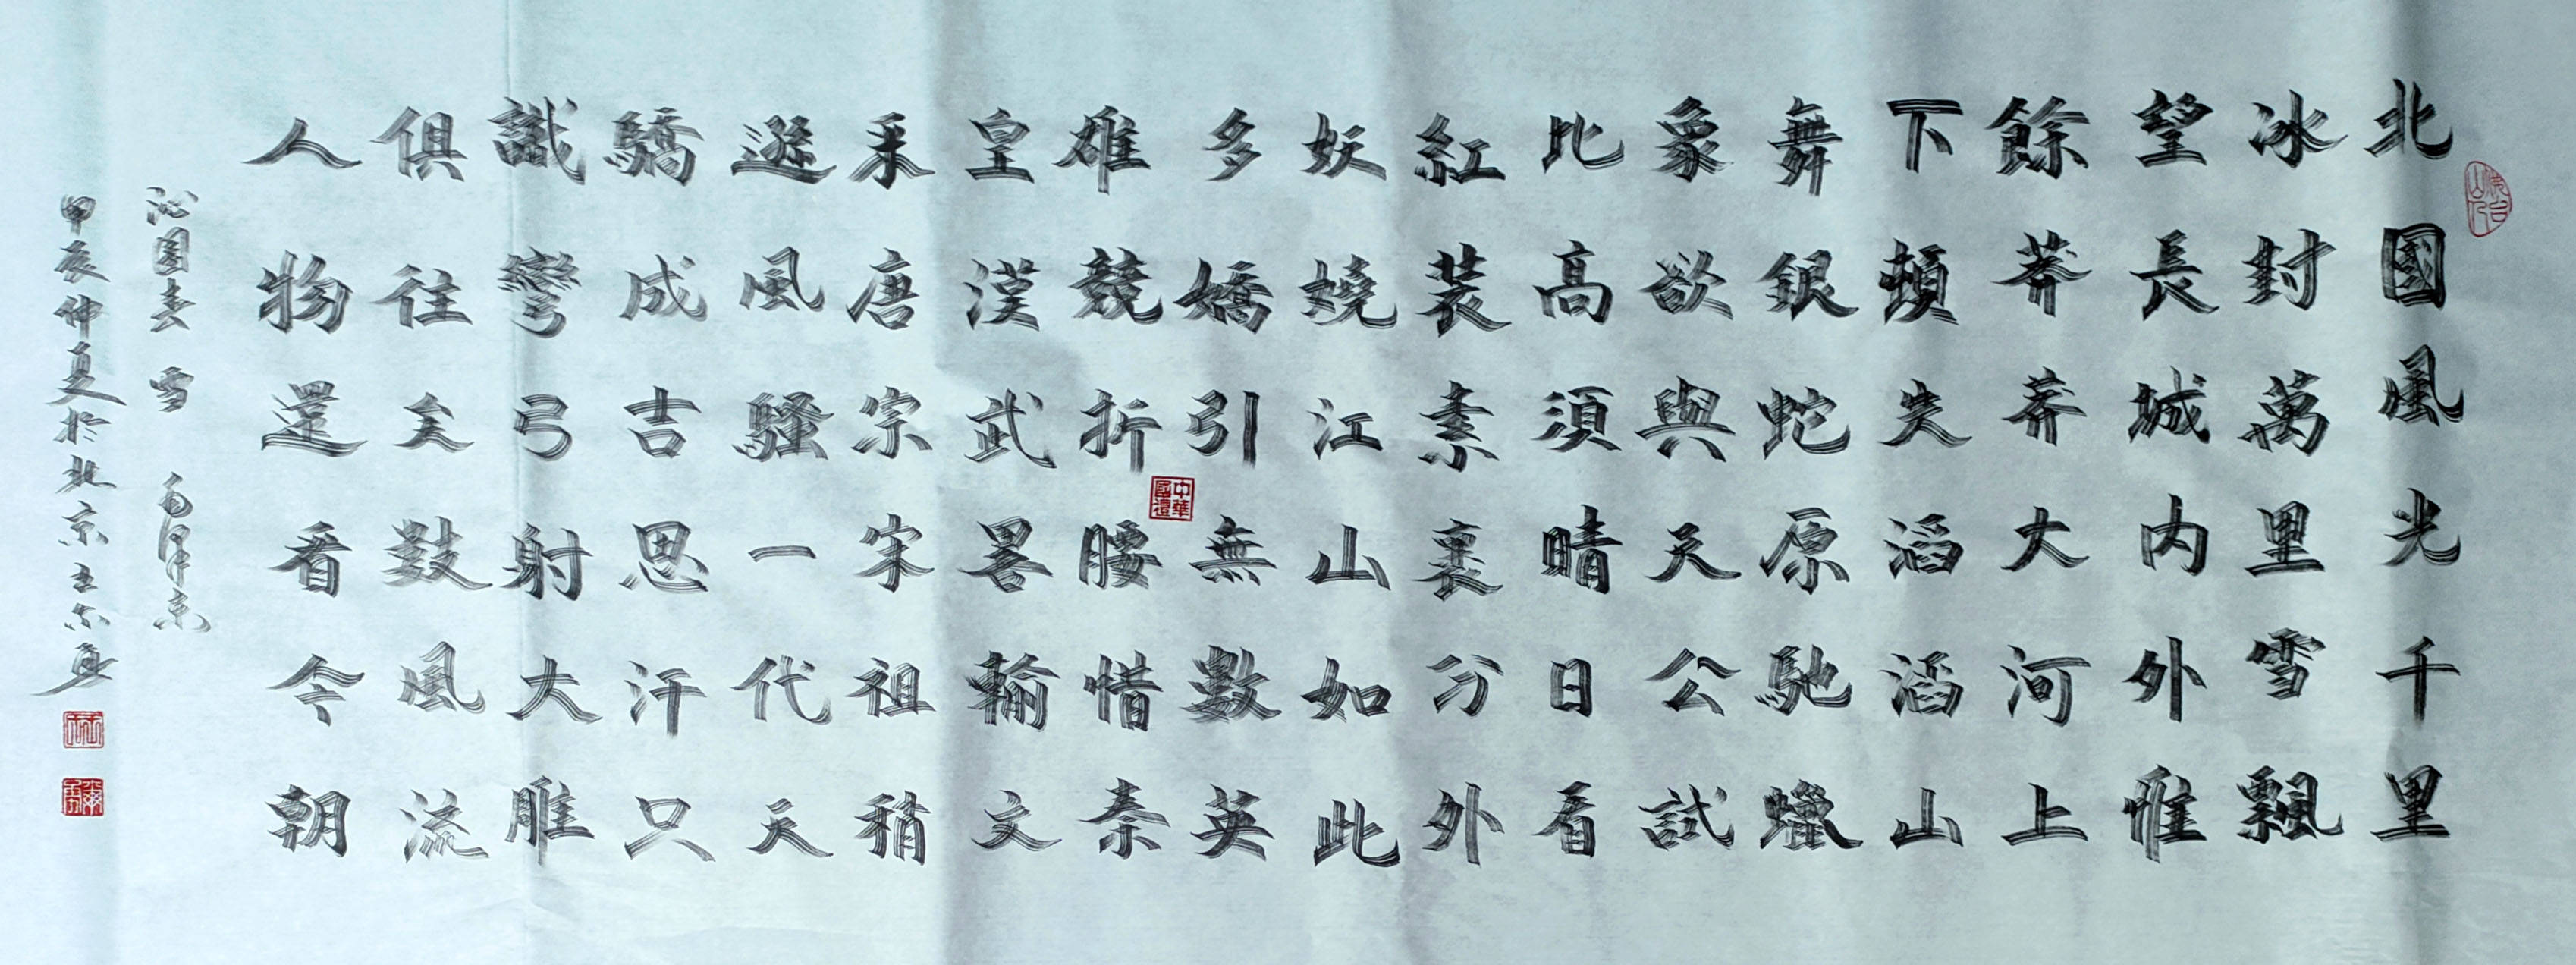 北國風光千里
冰封萬里雪飄
望長城内外惟
餘莽莽大河上
下頓失滔滔山
舞銀蛇原馳蠟
象欲與天公試
比高須晴日看
紅裝素裹分外
妖嬈江山如此
多嬌引無數英
雄競折腰惜秦
皇漢武畧輸文
采唐宗宋祖稍
遜風騷一代天
驕成吉思汗只
識彎弓射大雕
俱往矣數風流
人物還看今朝
沁園春 雪 毛澤东
甲辰仲夏於北京